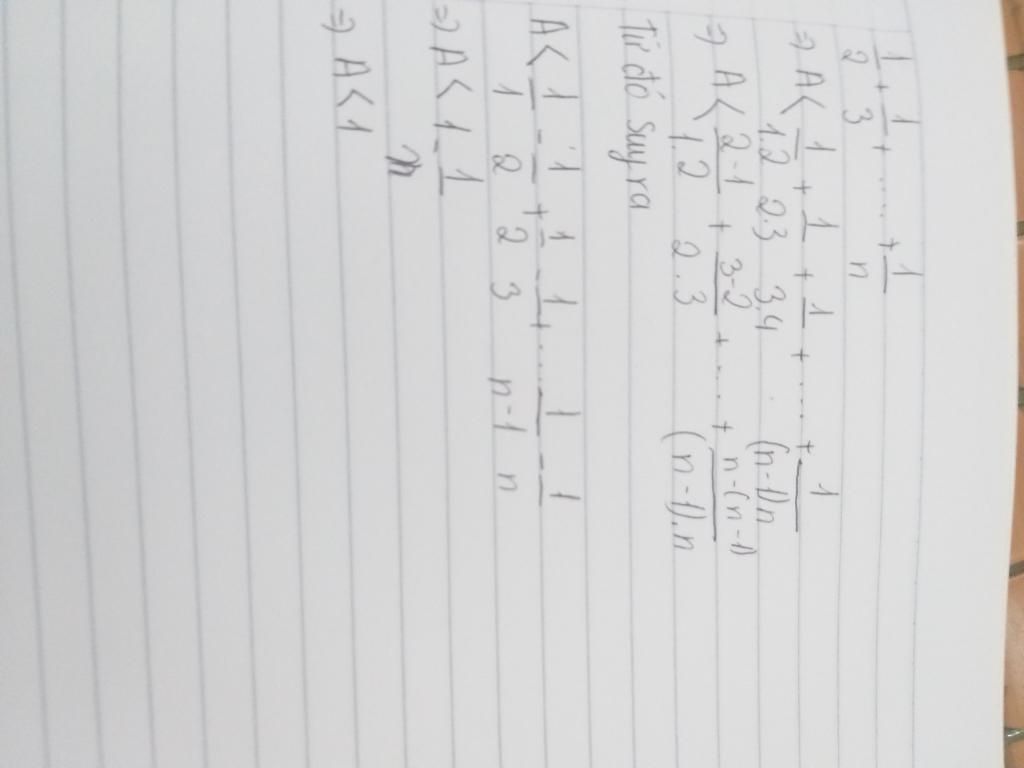 1/2 + 1/3 + ..... + 1/n
⇒ A < 1/1.2 + 1/2.3 + 1/3.4 + ..... + 1/(n-1).n
⇒ A < 2-1/1.2 + 3-2/2.3 + ..... + n-(n-1)/(n-1).n
Từ đó suy ra
A < 1/1 - 1/2 + 1/2 - 1/3 + .... 1/n-1 - 1/n
⇒ A < 1 - 1/n
⇒ A < 1